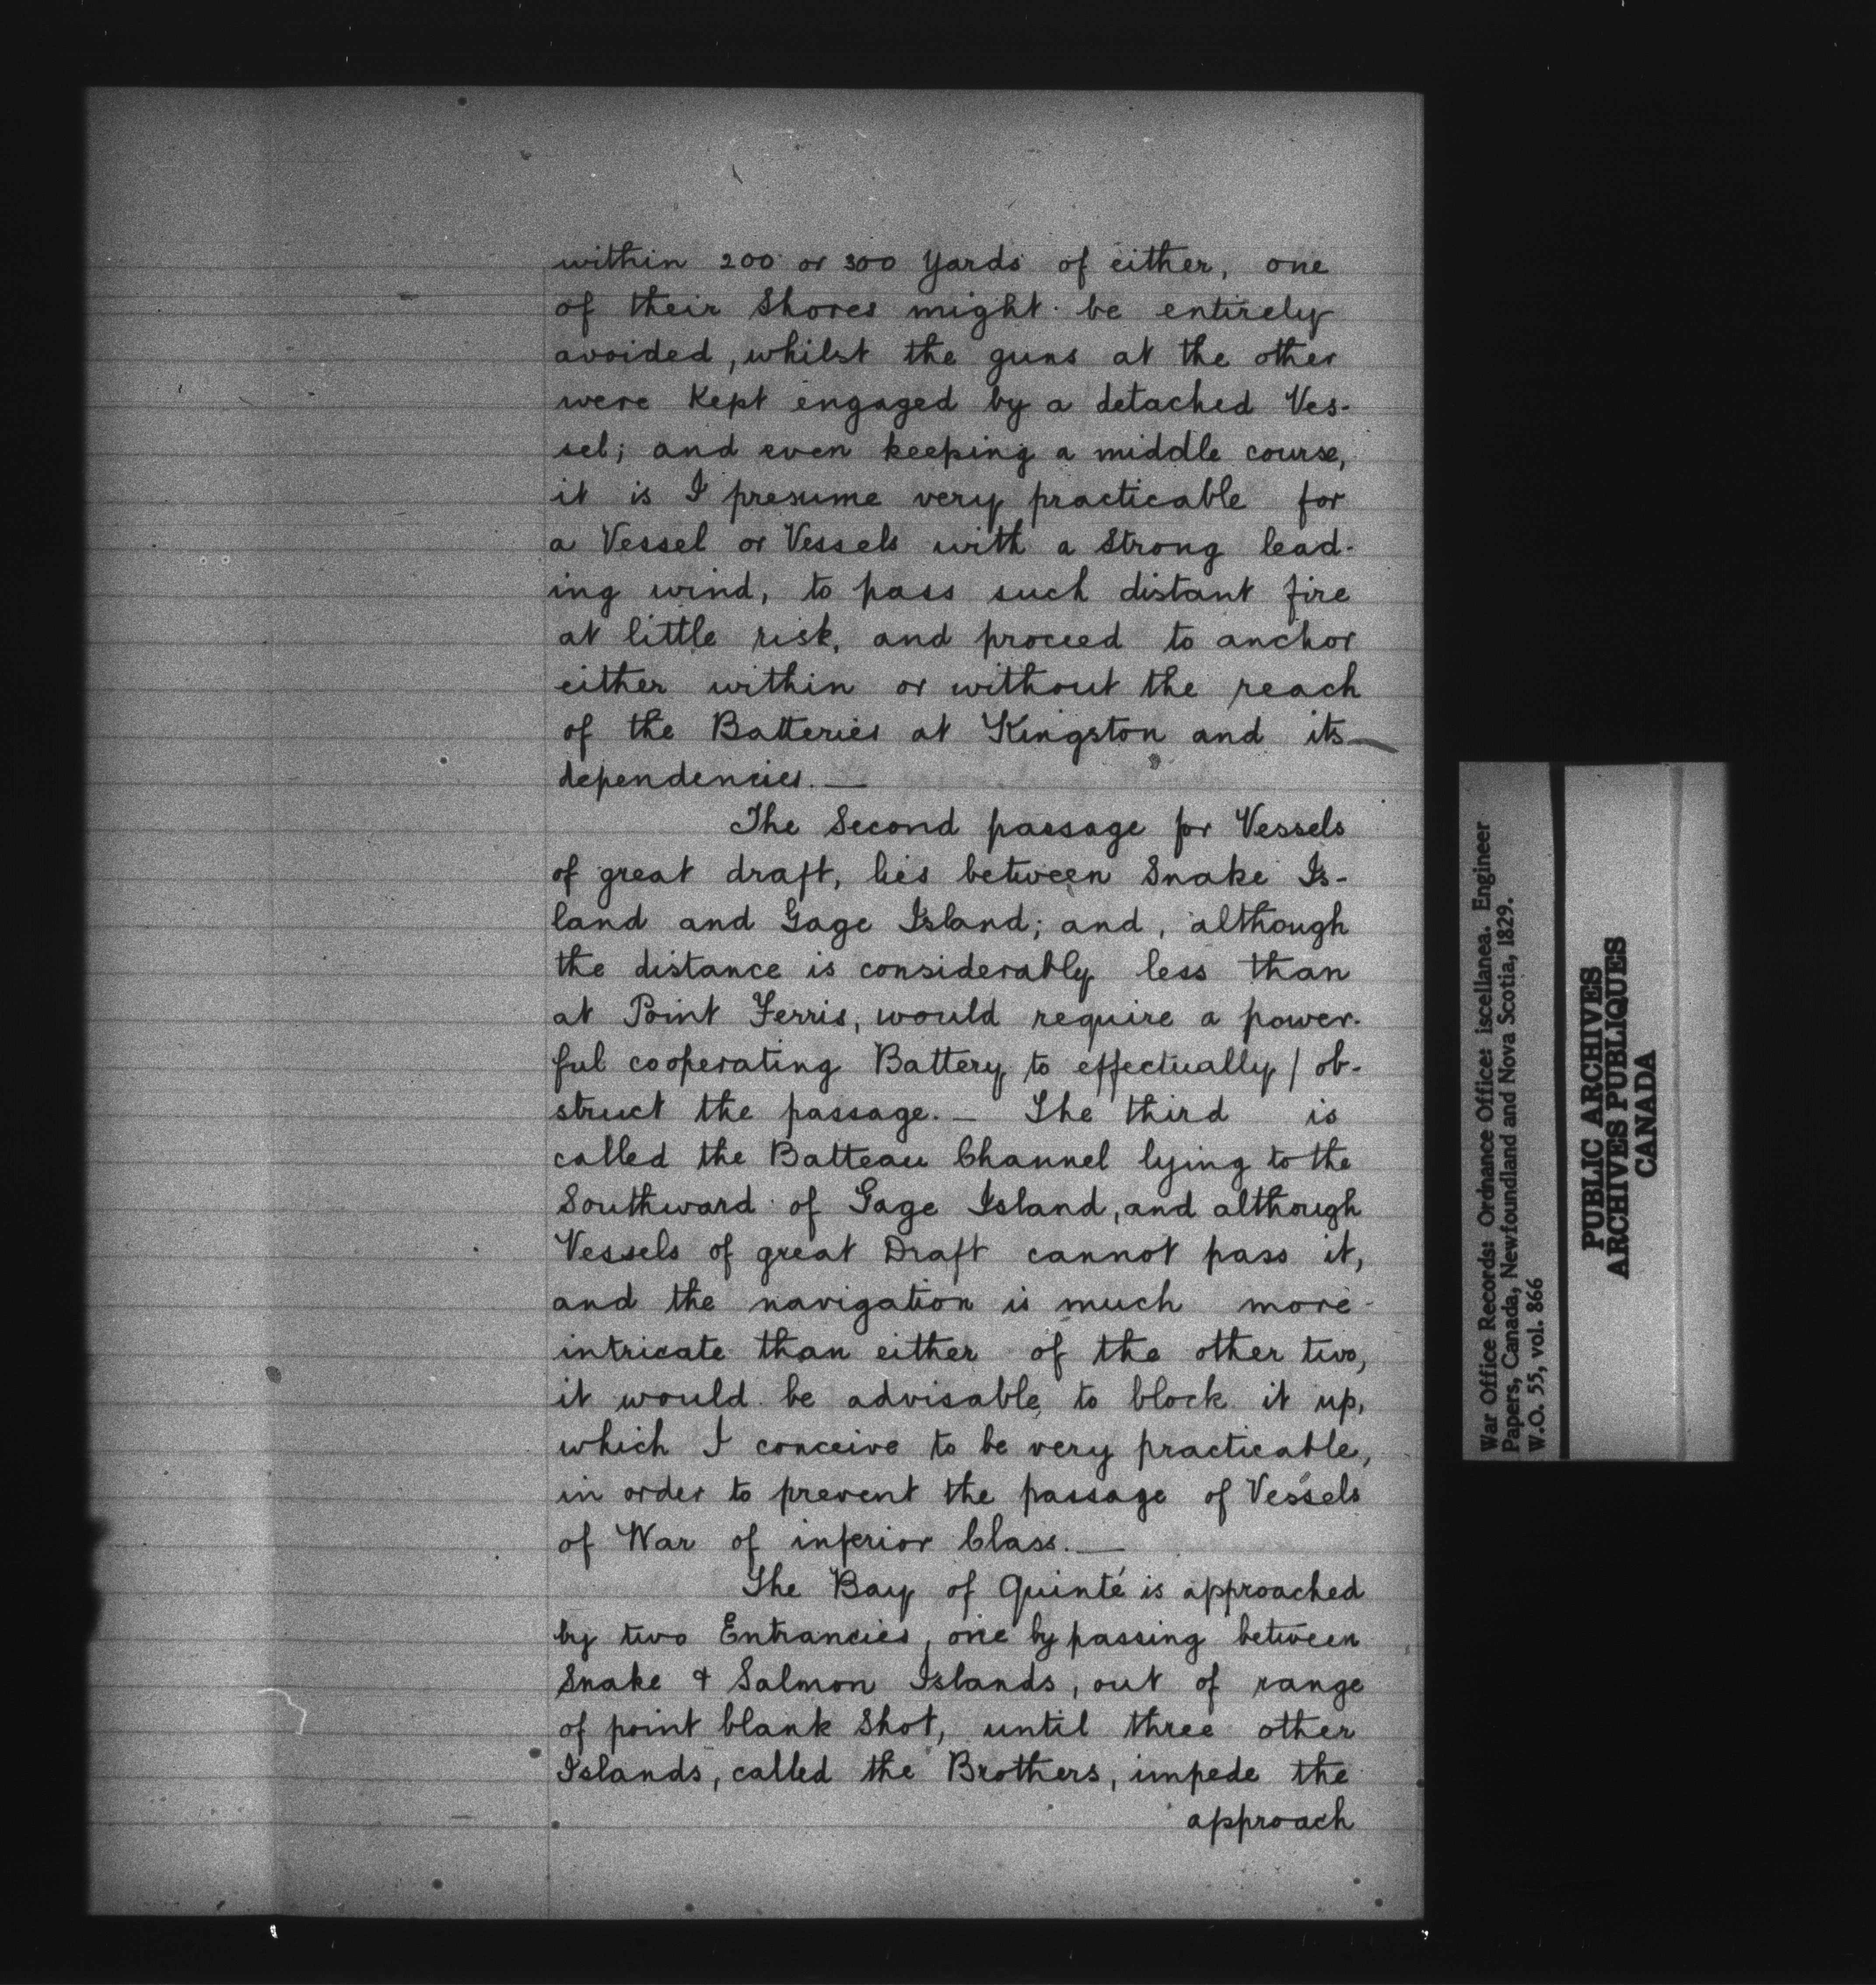 within 200 or 300 Yards of either, one
of their Shores might be entirely
avoided, whilst the guns at the other
were Kept engaged by a detached Ves-
sel; and even keeping a middle course,
it is I presume very practicable for
a Vessel or Vessels with a Strong lead-
ing wind, to pass such distant fire
at little risk, and proceed to anchor
either within or without the reach
of the Batteries at Kingston and its
dependencies. —
The Second passage for Vessels
of great draft, lies between Snake Is-
land and Gage Island; and, although
the distance is considerably less than
at Point Ferris, would require a power-
ful cooperating Battery to effectually / ob-
struct the passage. — The third is
called the Batteau Channel lying to the
Southward of Gage Island, and although
Vessels of great Draft cannot pass it,
and the navigation is much more
intricate than either of the other two,
it would be advisable to block it up,
which I conceive to be very practicable,
in order to prevent the passage of Vessels
of War of inferior Class. —
The Bay of Quinté is approached
by two Entrancies, one by passing between
Snake & Salmon Islands, out of range
of point blank Shot, until three other
Islands, called the Brothers, impede the
approach
War Office Records: Ordnance Office: iscellanea. Engineer
Papers, Canada, Newfoundland and Nova Scotia, 1829.
W.O. 55, vol. 866
PUBLIC ARCHIVES
ARCHIVES PUBLIQUES
CANADA